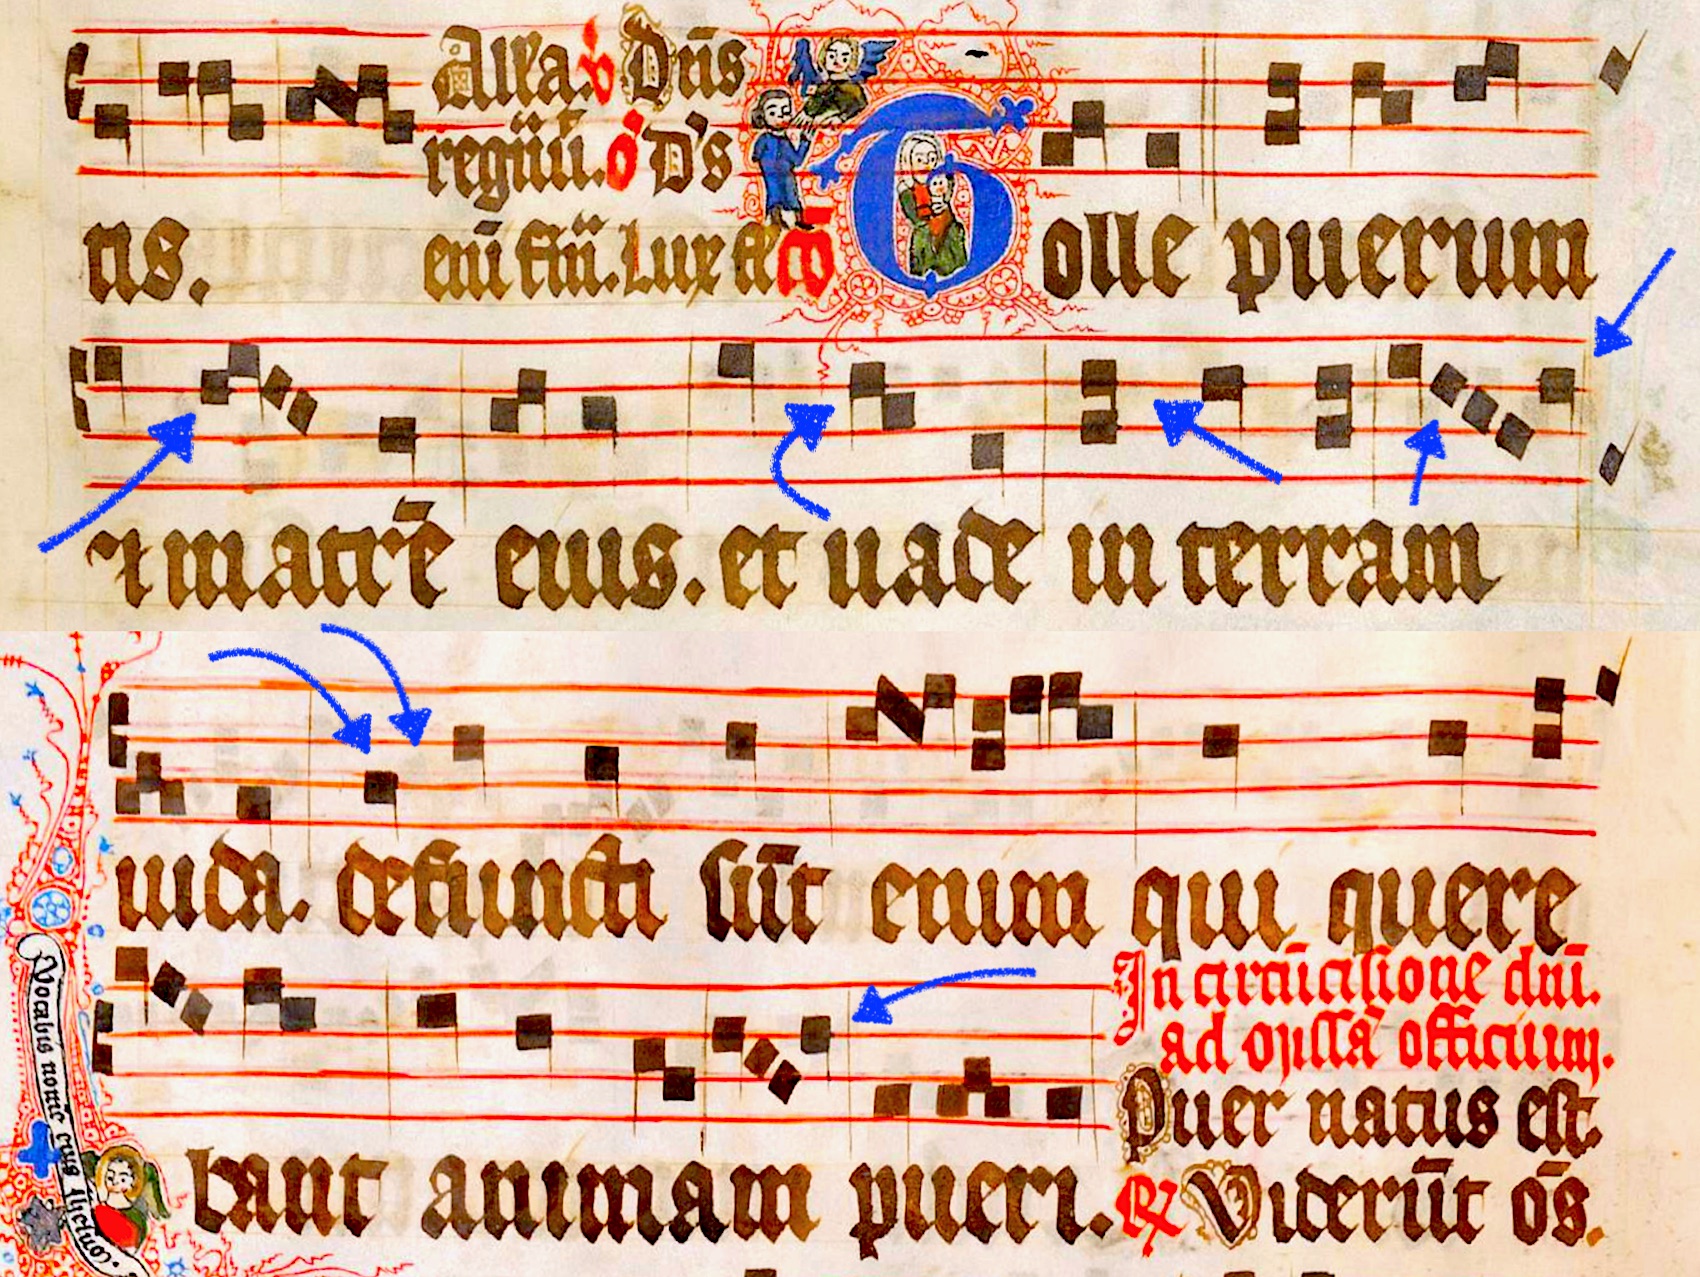 Alla. v Dn̄s
regūu. o D's
tis. enī firm̄. Lux ff co Tolle puerum
⁊ matrē eius. et uade in terram
iuda. defuncti sūt enim qui quere
bant animam pueri.
In circūcisione dn̄i.
ad missā officium.
Puer natus est.
R Viderūt ōs.
Vocabis nomē eius